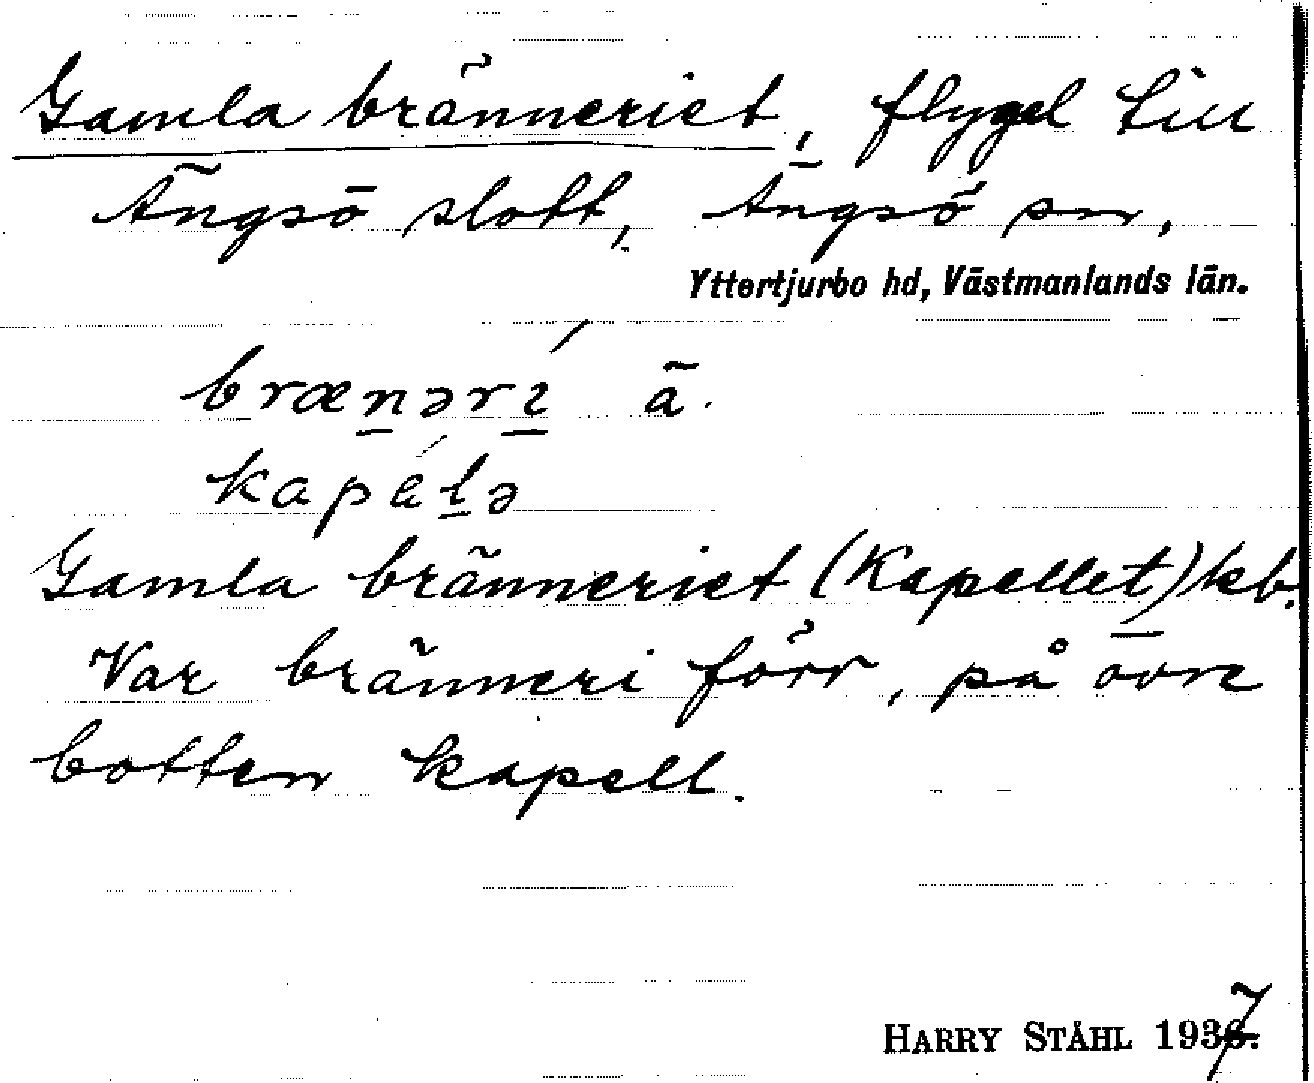 Gamla bränneriet, flygel till
Ängsö slott, Ängsö sn,
Yttertjurbo hd, Västmanlands län.
brænərí ā.
kapélə
Gamla bränneriet (Kapellet) kb.
Var bränneri förr, på övre
botten kapell.
HARRY STÅHL 1937.